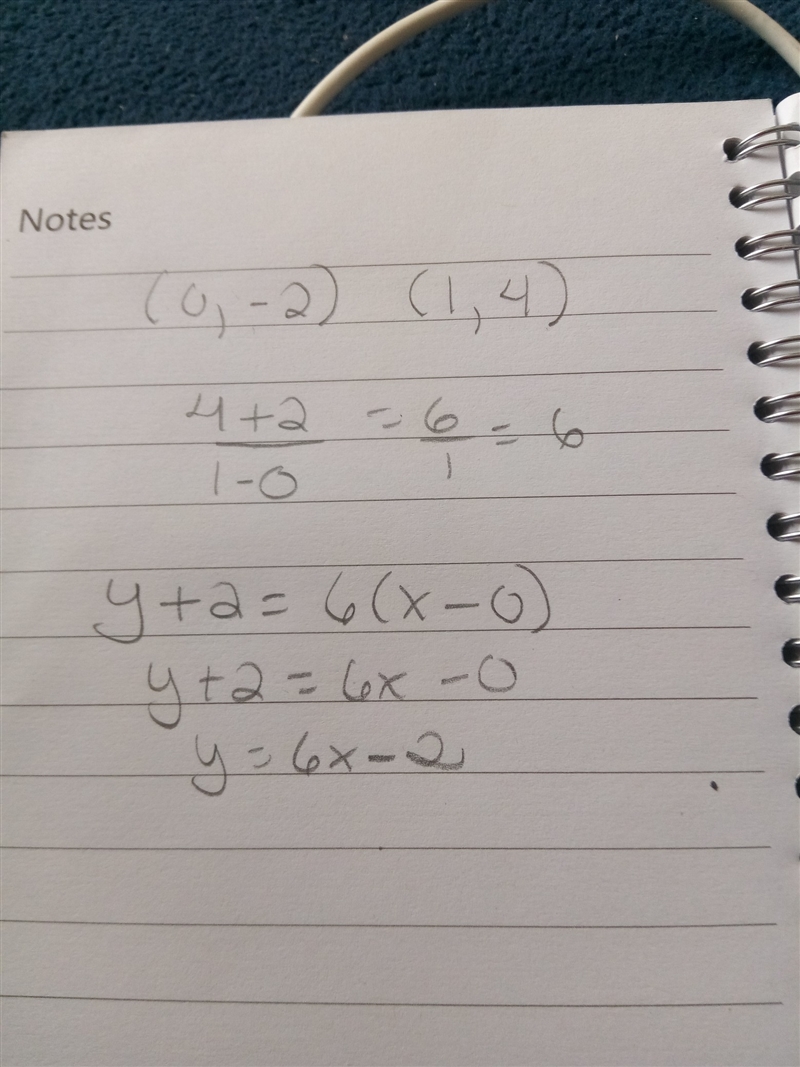 Notes
(0, -2) (1, 4)
4+2 = 6 = 6
1-0 1
y+2 = 6(x-0)
y+2 = 6x -0
y = 6x-2